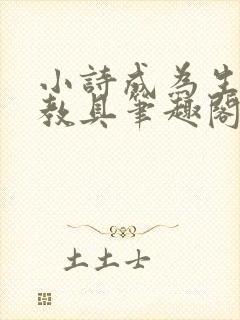 小詩成為生
教具筆趣閣
土土士